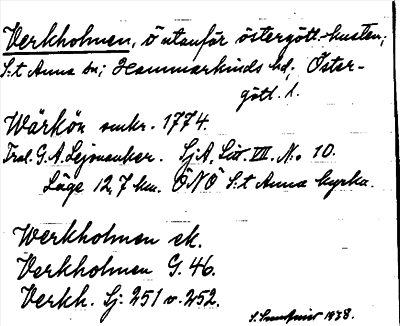 Verkholmen, ö utanför östergötl.-kusten;
S:t Anna sn; Hammarkinds hd; Öster-
götl. l.
Wärkön omkr. 1774.
Tral. G. A. Lejonanker. SjA, Litt. VII. No 10.
Läge 12,7 km. ÖNÖ S:t Anna kyrka.
Werkholmen ek.
Verkholmen G. 46.
Verkh. Sj: 251 o. 252.
1938.